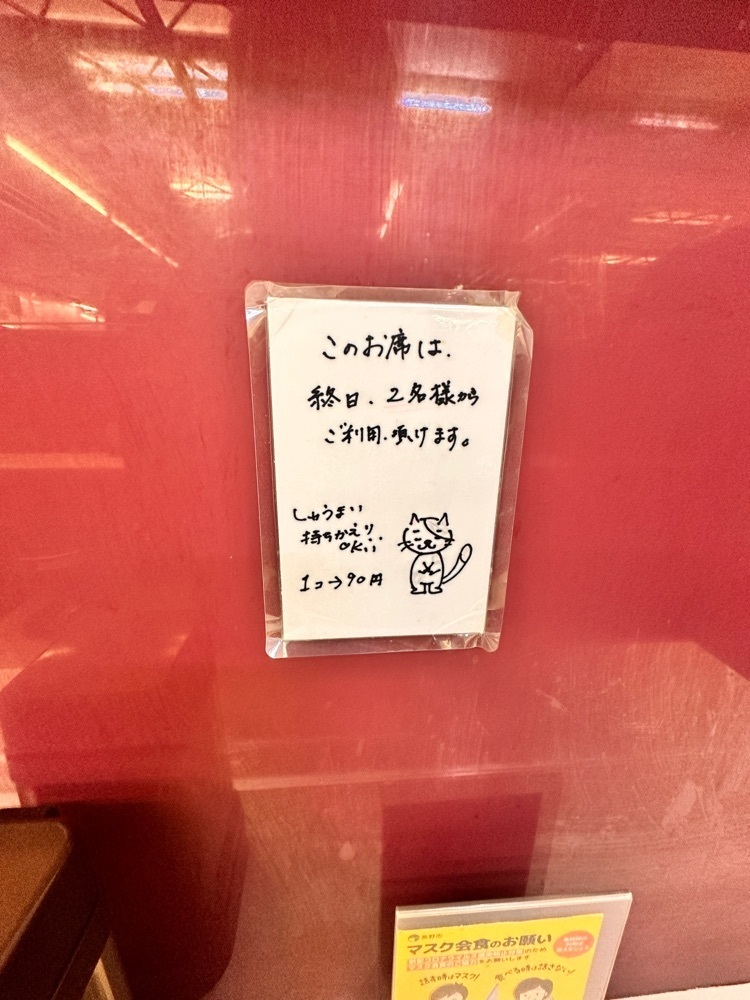 このお席は、
終日、2名様から
ご利用頂けます。
しゅうまい
持ちかえり
OK!!
1コ→90円
マスク会食のお願い
話す時はマスク!
食べる時は話さない!